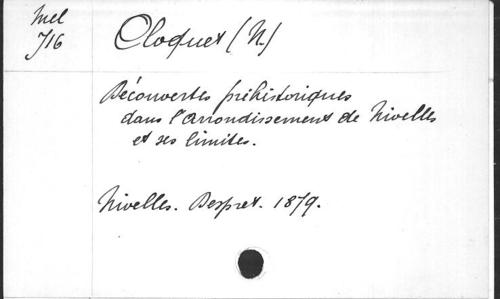 Mel
716
Cloquet (N.)
Découvertes préhistoriques
dans l'arrondissement de Nivelles
et ses limites.
Nivelles. Despret. 1879.